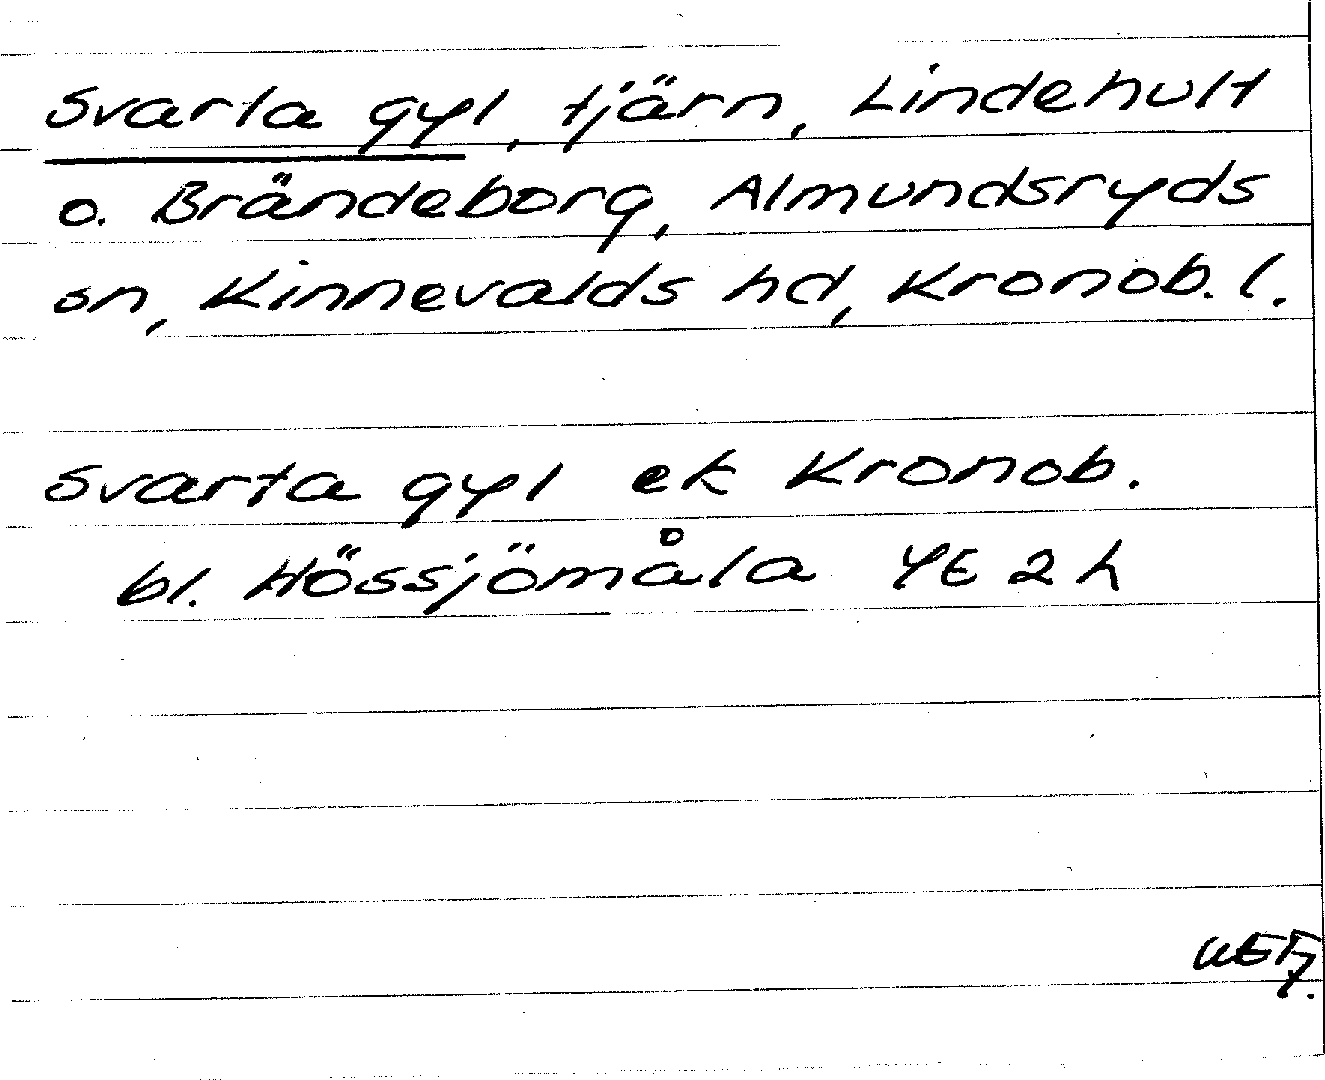 Svarta gyl, tjärn, Lindehult
o. Brändeborg, Almundsryds
sn, Kinnevalds hd, Kronob. l.
Svarta gyl ek Kronob.
bl. Hössjömåla 4E 2h